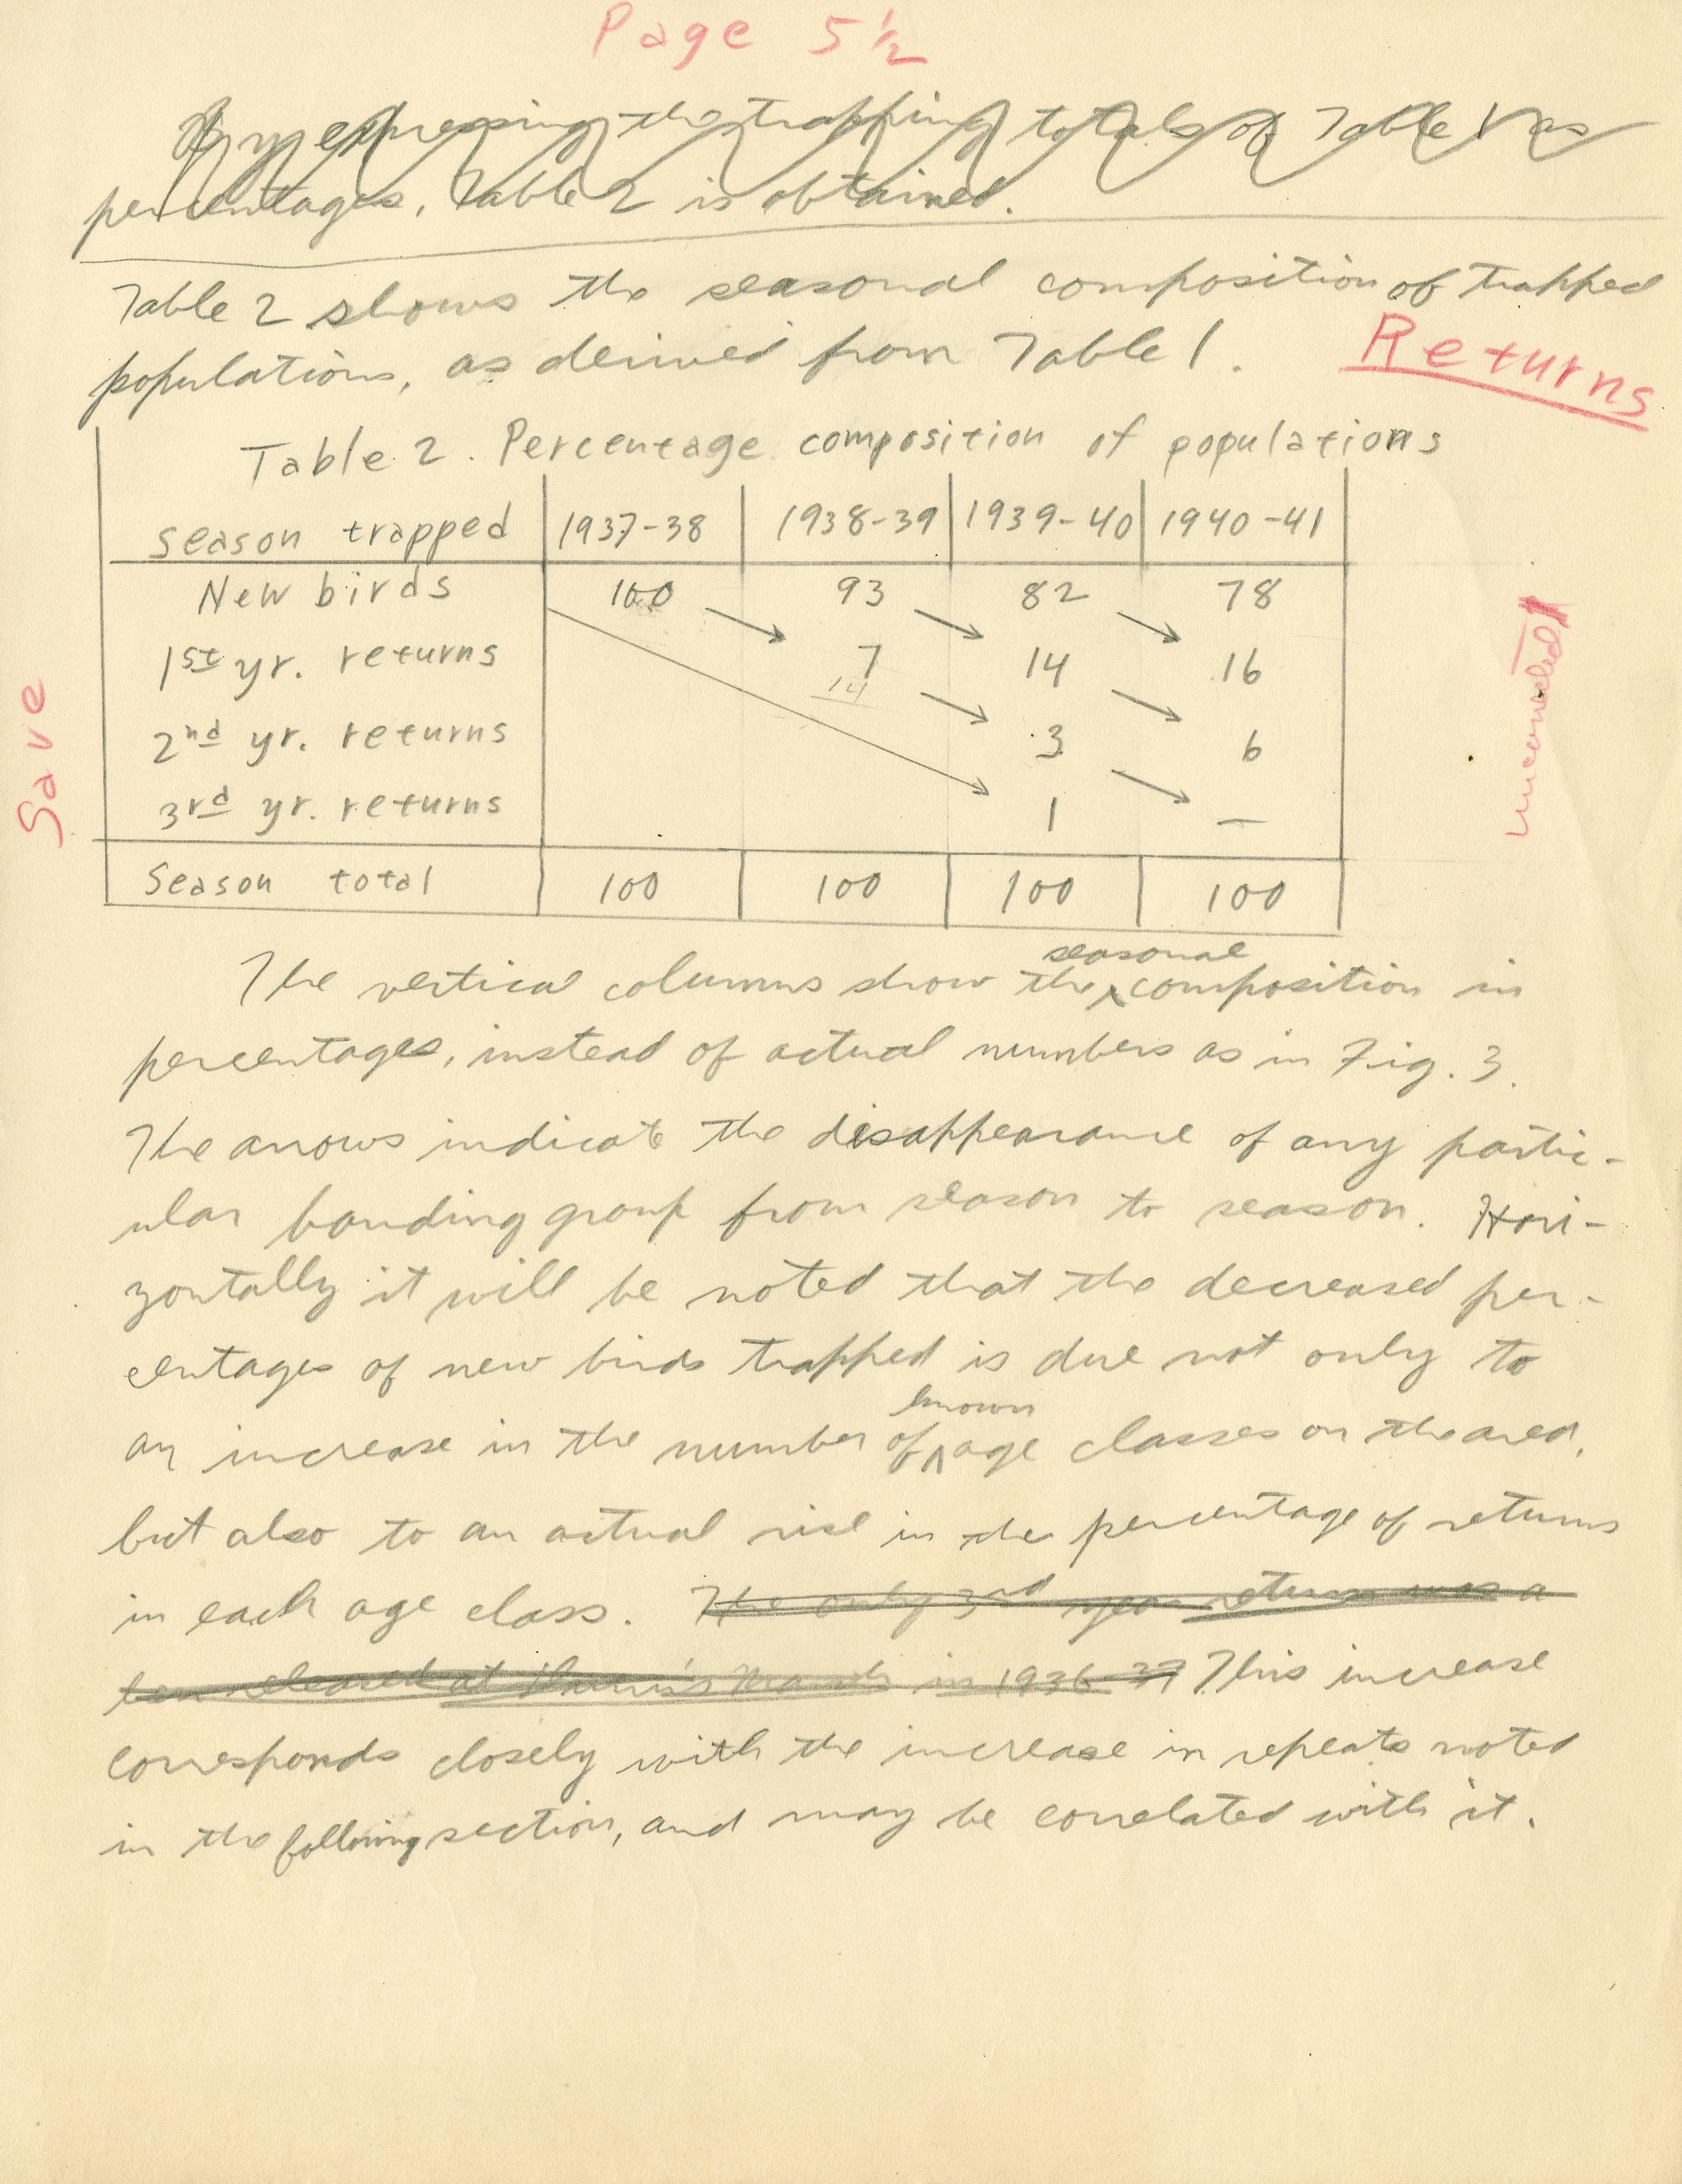 Page 5 1/2
By expressing the trapping totals of Table 1 as
percentages, Table 2 is obtained.
Table 2 shows the seasonal composition of trapped
populations, as derived from Table 1.
Returns
Table 2. Percentage composition of populations
season trapped 1937-38 1938-39 1939-40 1940-41
New birds 100 93 82 78
1st yr. returns 7 14 16
14
2nd yr. returns 3 6
3rd yr. returns 1 —
Season total 100 100 100 100
Save
seasonal
The vertical columns show the composition in
percentages, instead of actual numbers as in Fig. 3.
The arrows indicate the disappearance of any partic-
ular banding group from season to season. Hori-
zontally it will be noted that the decreased per-
centages of new birds trapped is due not only to
known
an increase in the number of age classes on the area,
but also to an actual rise in the percentage of returns
in each age class. The only 3rd year return was a
hen released at in 1936-37 This increase
corresponds closely with the increase in repeats noted
in the following section, and may be correlated with it.